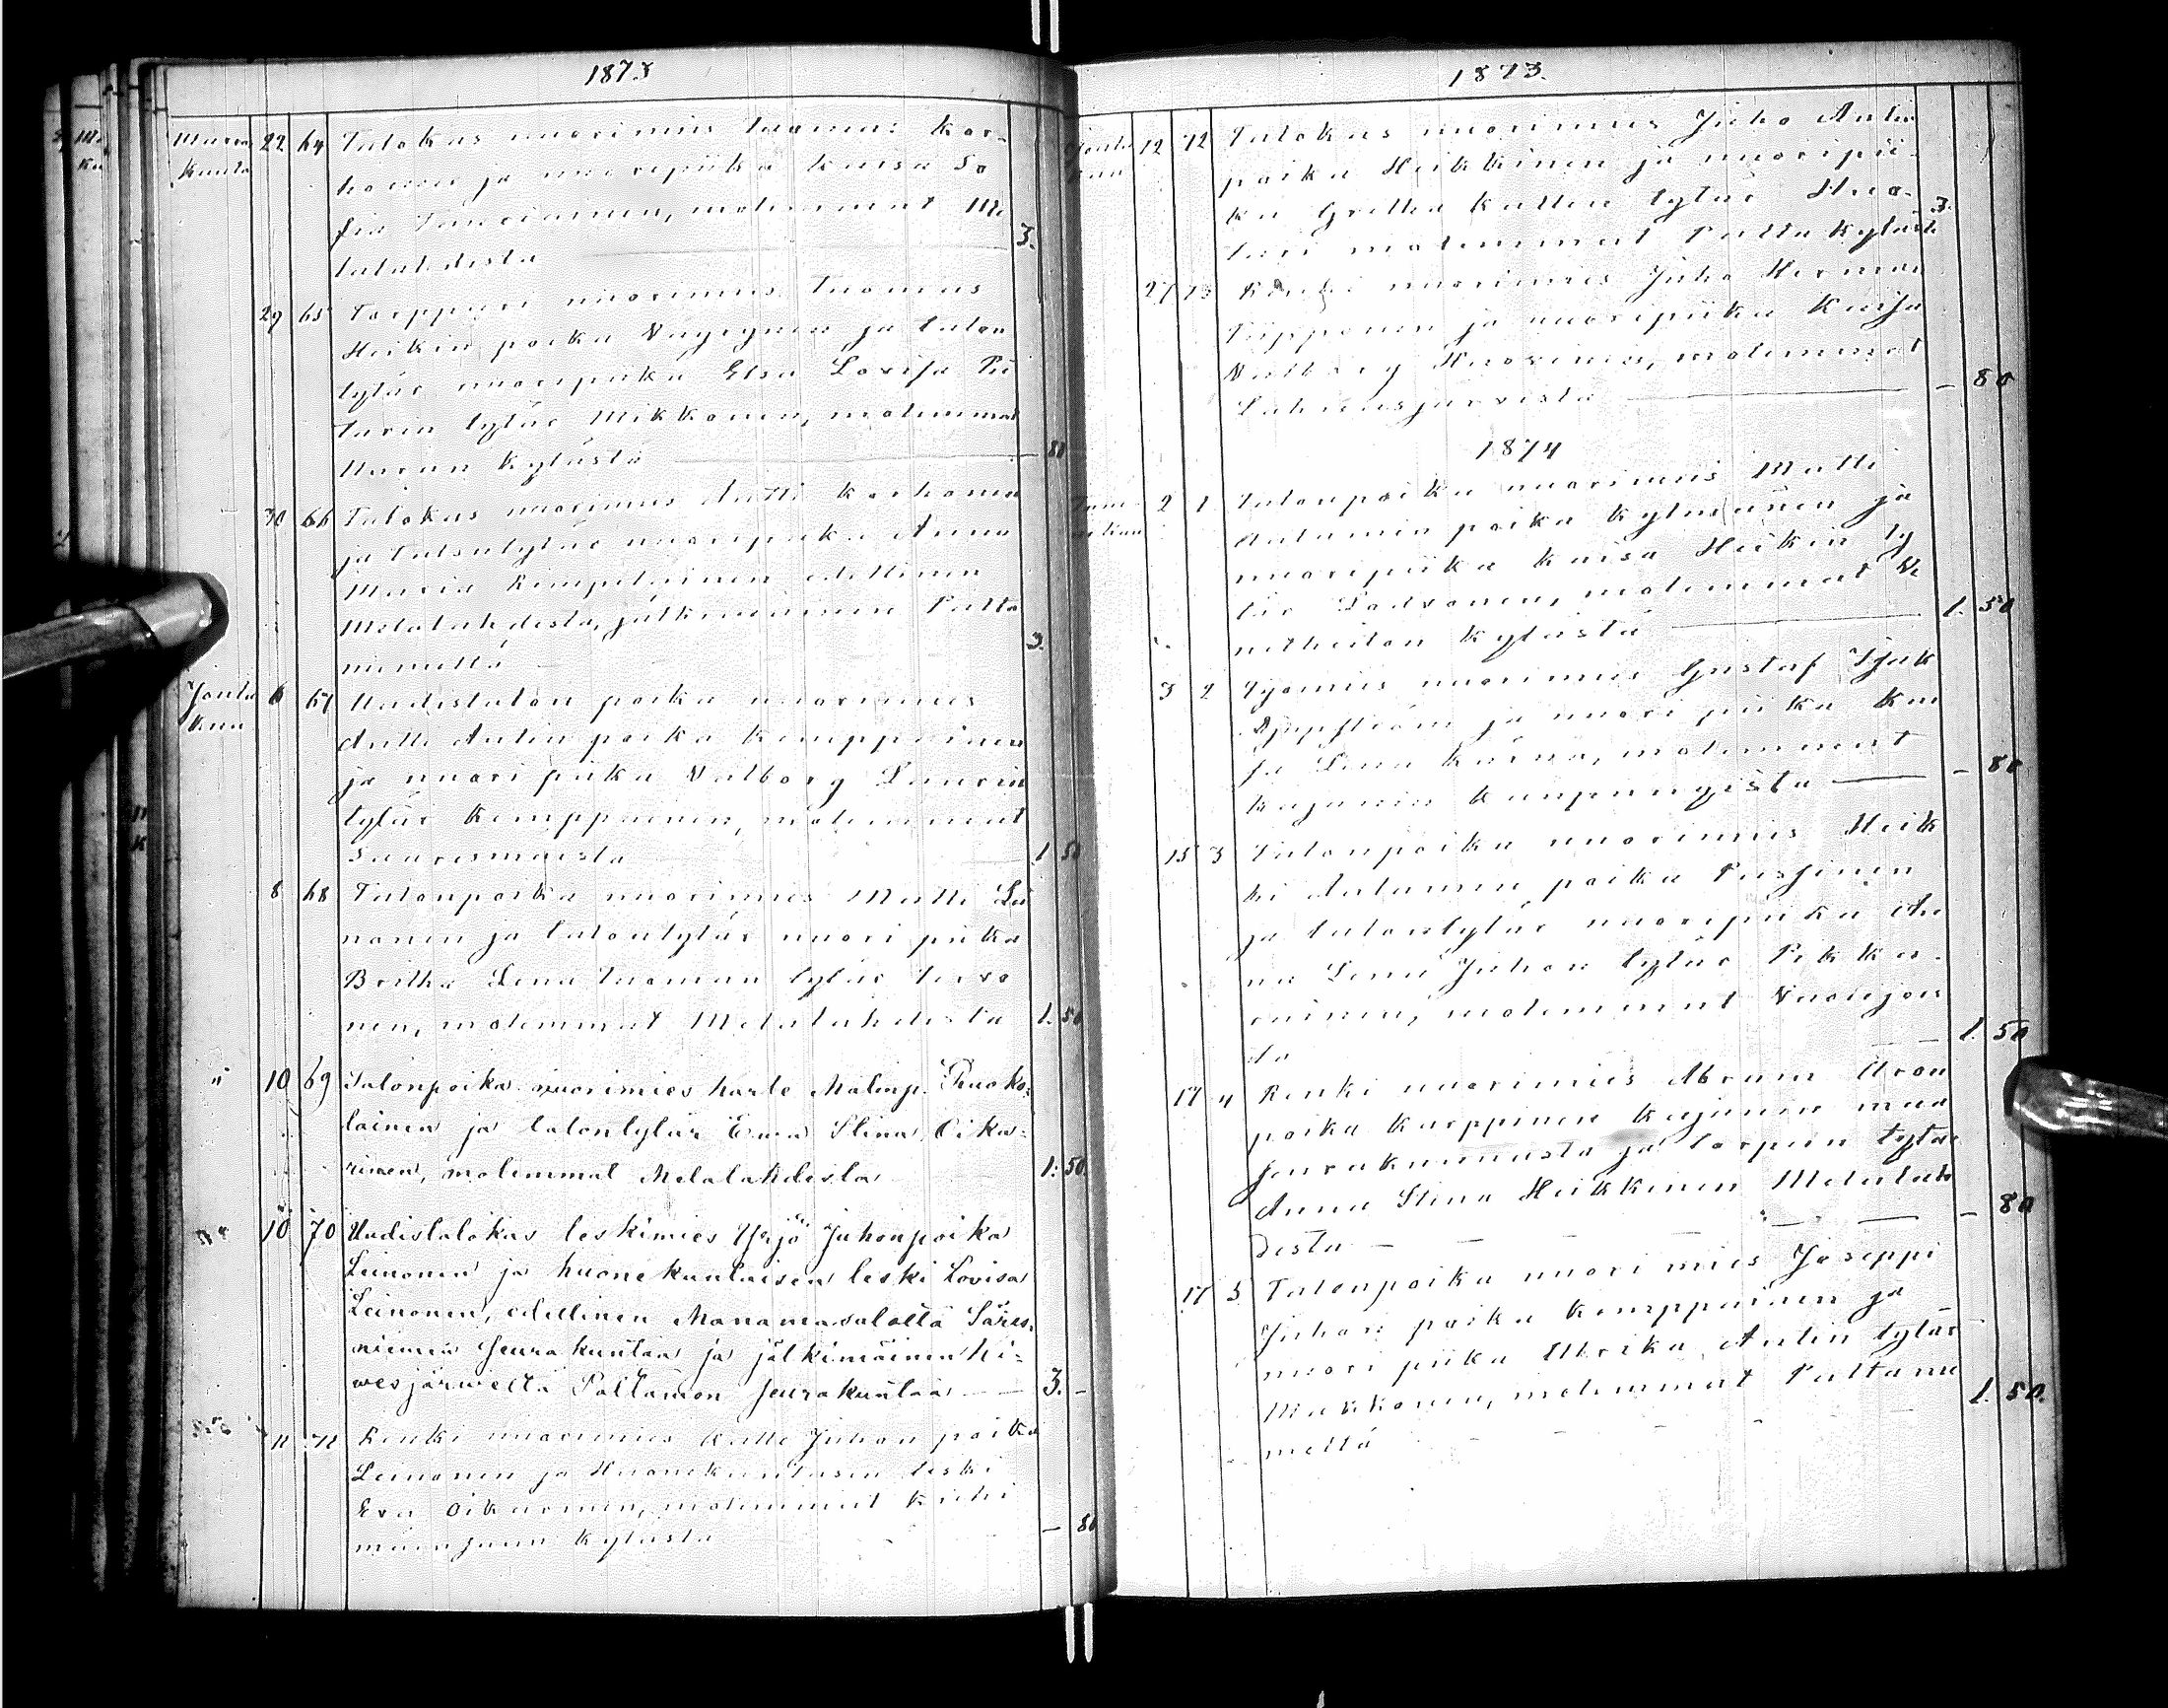 1873
Marras 22 64 Talokas nuorimies Tuomas Kor-
kuula honen ja nuoripiika Kaisa So
fia Tauriainen, molemmat Me
lalahdesta 3.
29 65 Torppari nuorimies Tuomas
Heikin poika Väyrynen ja talon
tytär nuoripiika Elsa Lovisa Pie
tarin tytär Mikkonen, molemmat
Uuran kylästä — 80
30 66 Talokas nuorimies Antti Korhonen
ja talontytär nuoripiika Anna
Maria Kemppainen edellinen
Melalahdesta, jälkimäinen Palta
niemeltä 3.
Joulu 6 67 Uudistalon poika nuorimies
kuu Antti Antin poika Kemppainen
ja nuori piika Valborg Laurin
tytär Kemppainen, molemmat
Saaresmäestä 1 50
8 68 Talonpoika nuorimies Matti Lei
nonen ja talontytär nuori piika
Britha Lena Tuoman tytär Tervo
nen, molemmat Melalahdesta 1. 50
" 10 69 Talonpoika nuorimies Karle Malmp. Ruoko-
lainen ja talontytär Ewa Stina Oika-
rinen, molemmat Melalahdesta 1: 50
10 70 Uudistalokas leskimies Yrjö Juhonpoika
Leinonen ja huonekuulaisen leski Lovisa
Leinonen, edellinen Manamasalolta Säres-
niemen seurakuntaa ja jälkimäinen Ki-
wesjärweltä Paltamon seurakuntaa — 3. -
11 71 Renki nuorimies Antti Juhon poika
Leinonen ja Huonekuntasen leski
Eva Oikarinen, molemmat Kiehi
mäenjuun kylästä — 80
1873.
Joulu 12 72 Talokas nuorimies Juho Antin
kuu poika Heikkinen ja nuoripii-
ka Gretha Kallen tytär Huo-
tari molemmat Paltakylästä 3.
27 73 Renki nuorimies Juho Herman
Tripponen ja nuoripiika Kaisa
Valborg Huovinen, molemmat
Lahnasjärvestä — 80
1874
Tam 2 1 Talonpoika nuorimies Matti
mikuu Antamin poika Kylmänen ja
nuoripiika Kaisa Heikin ty
tär molemmat Ve
netheiton kylästä 1. 50
3 2 Työmies nuorimies Gustaf Isak
ja nuori piika Kai
sa Lena Kärnä, molemmat
Kajanin kaupungista — 80
15 3 Talonpoika nuorimies Heik
ki Antamin poika Pussinen
ja talontytär nuoripiika An
na Lena Juhon tytär Pikka-
rainen, molemmat Vuolijoe
sta 1. 50
17 4 Renki nuorimies Abram Aron
poika Karppinen Kajanin maa
seurakunnasta ja torpan tytär
Anna Stina Heikkinen Melalah
desta — 80
17 5 Talonpoika nuori mies Joseppi
Juhon poika Kemppainen ja
nuori piika Ulrika Antin tytär
Mikkonen, molemmat Paltanie
meltä 1. 50.